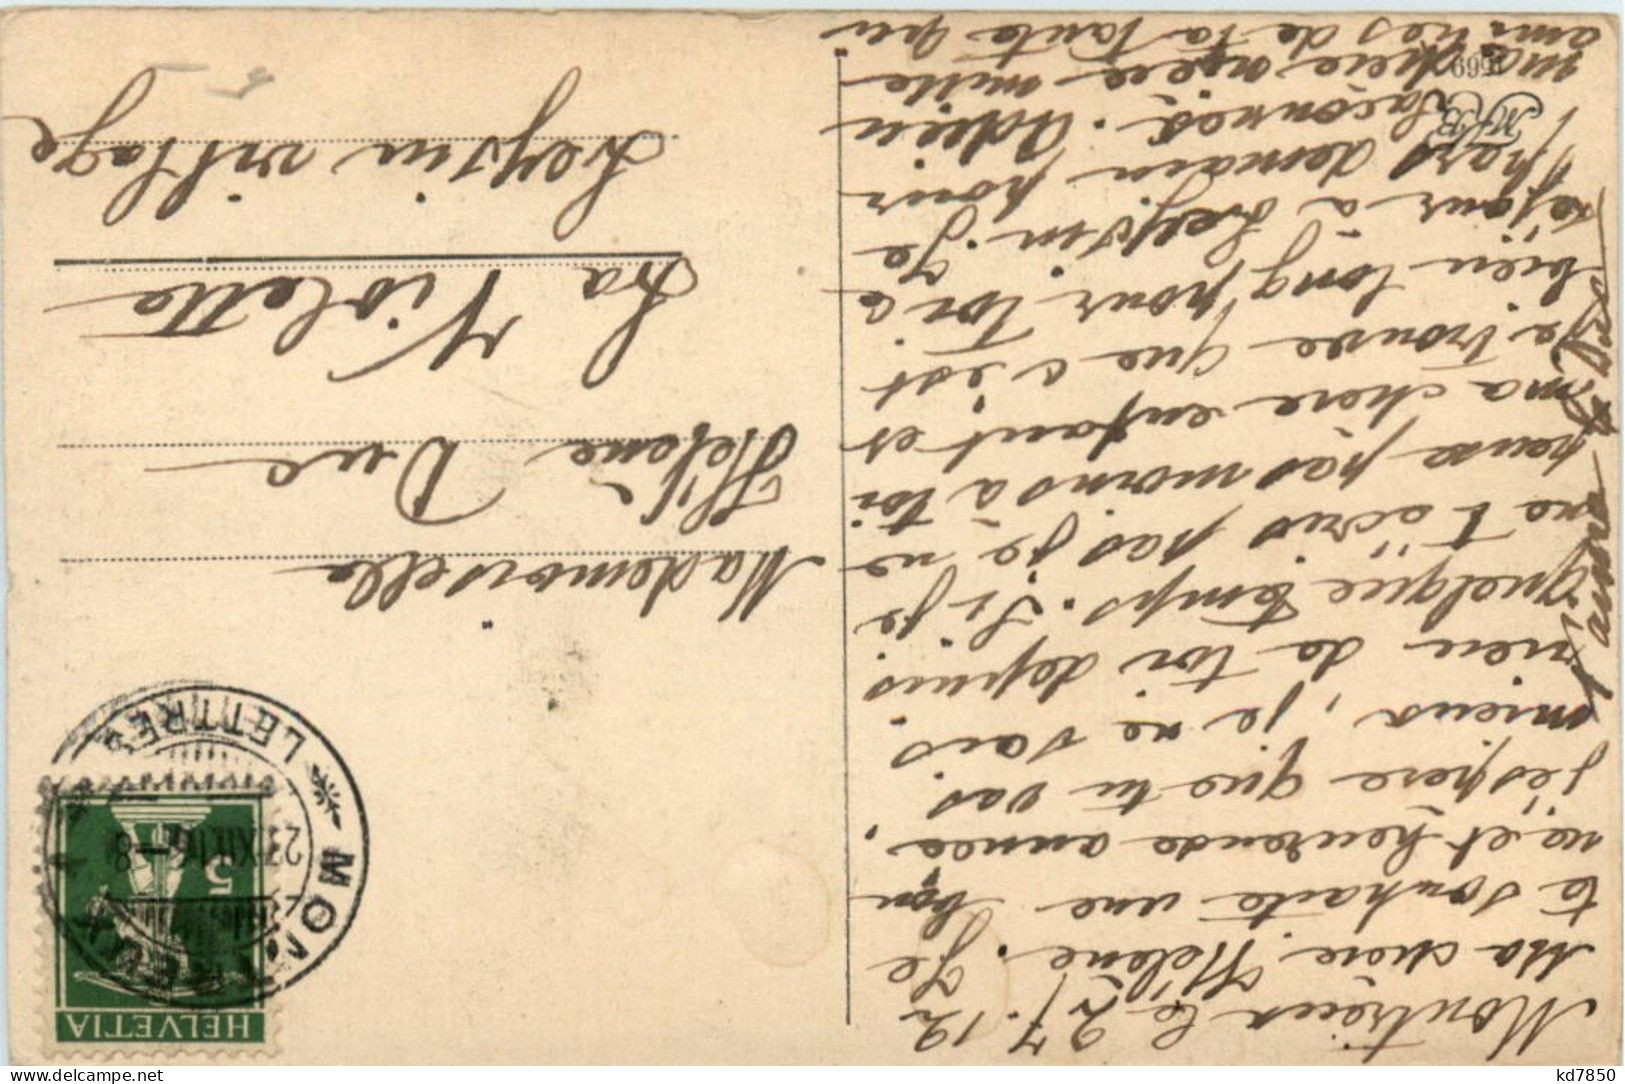 Montreux le 27. 12
Ma chère Hélène. Je
te souhaite une bon
ne et heureuse année,
j'espère que tu vas
mieux, je ne sais
rien de toi depuis
quelque temps. Si je
ne t'écris pas je ne
pense pas moins à toi
ma chère enfant et
je trouve que c'est
bien long pour toi ce
séjour à Leysin. Je
pars demain pour
Saconnex. Adieu
ma chère nièce mille
amitiés de ta tante qui
Mademoiselle
Hélène Duc
La Violette
Leysin village
HELVETIA
5
MONTREUX
LETTRES
27.XII.16-8
MB
6998
kd7850